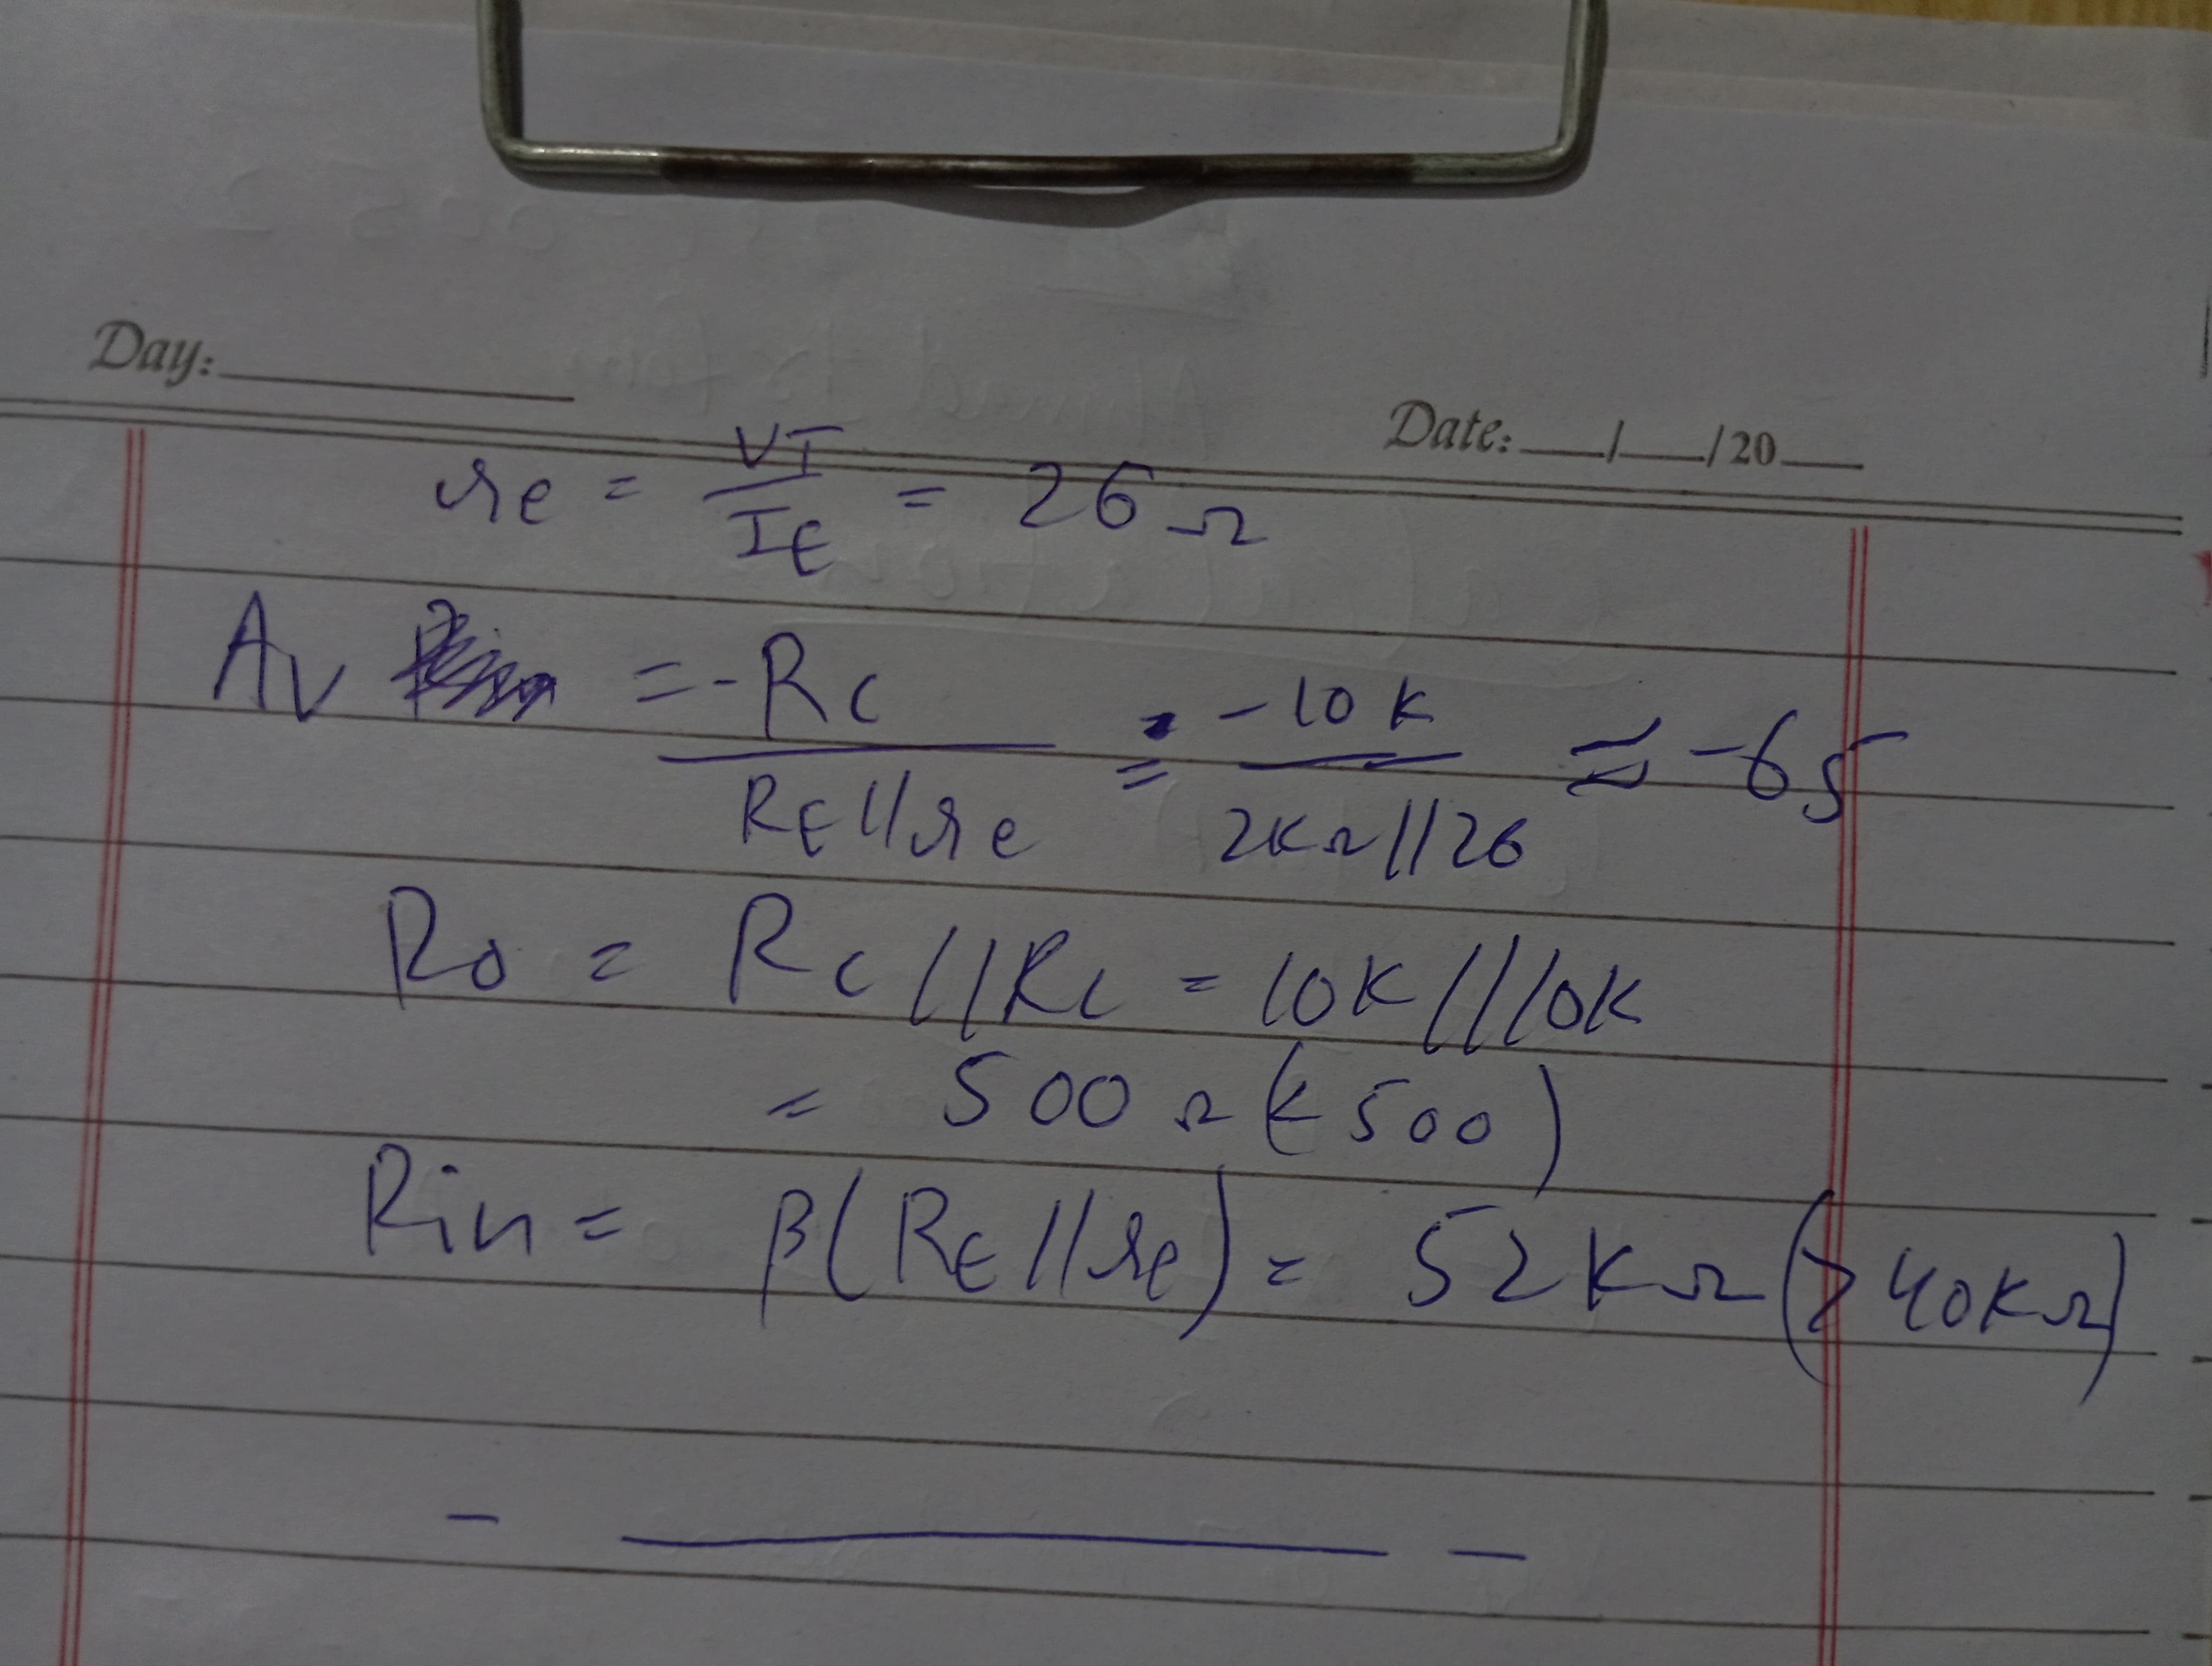 Day:
Date: / /20
re = VT / IE = 26 Ω
Av = -RC / RE//re = -10 K / 2KΩ//26 ≈ -65
Ro = RC//RL = 10K//10K
= 500 Ω (< 500)
Rin = β(RE//re) = 52 KΩ (> 40KΩ)